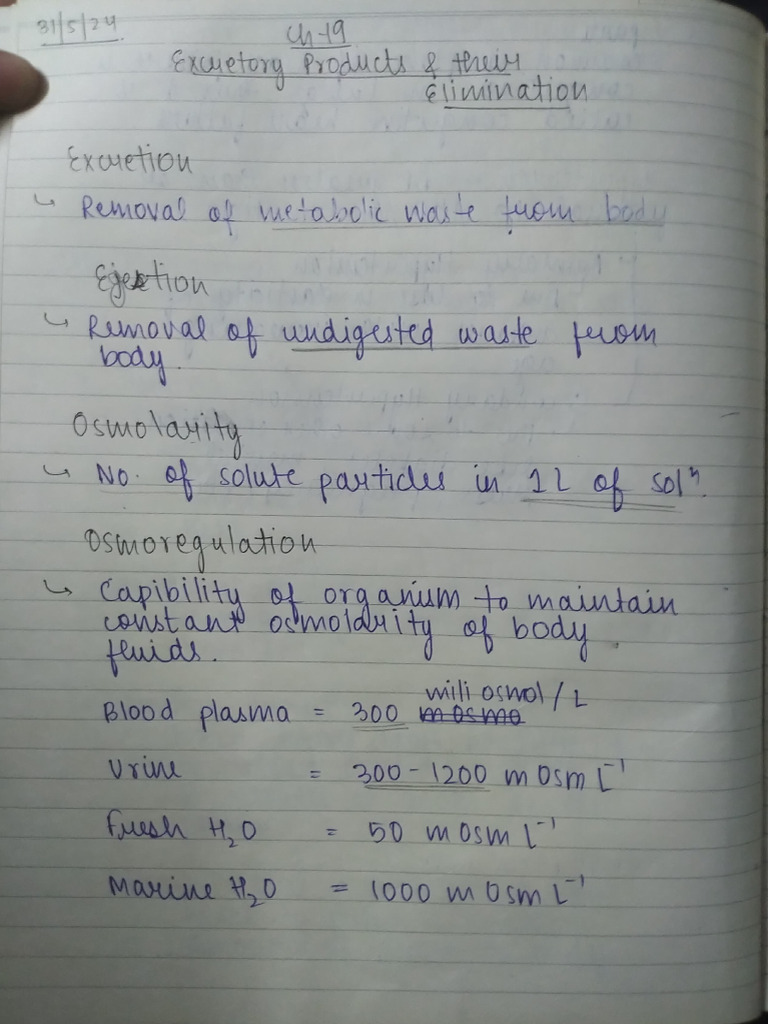 31/5/24
Ch-19
Excretory Products & their
Elimination
Excretion
↳ Removal of metabolic waste from body
Ejection
↳ Removal of undigested waste from
body.
Osmolarity
↳ No. of solute particles in 1L of solⁿ.
Osmoregulation
↳ Capibility of organism to maintain
constant osmolarity of body
fluids.
Blood plasma = 300 m osmo mili osmol/L
Urine = 300-1200 m Osm L⁻¹
Fresh H₂O = 50 m Osm L⁻¹
Marine H₂O = 1000 m Osm L⁻¹